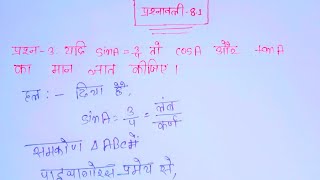 प्रश्नावली-8.1
प्रश्न-3. यदि sinA=3/4 तो cosA और tanA
का मान ज्ञात कीजिए।
हल:- दिया है,
sinA = 3/4 = लंब/कर्ण
समकोण △ABC में
पाइथागोरस प्रमेय से,